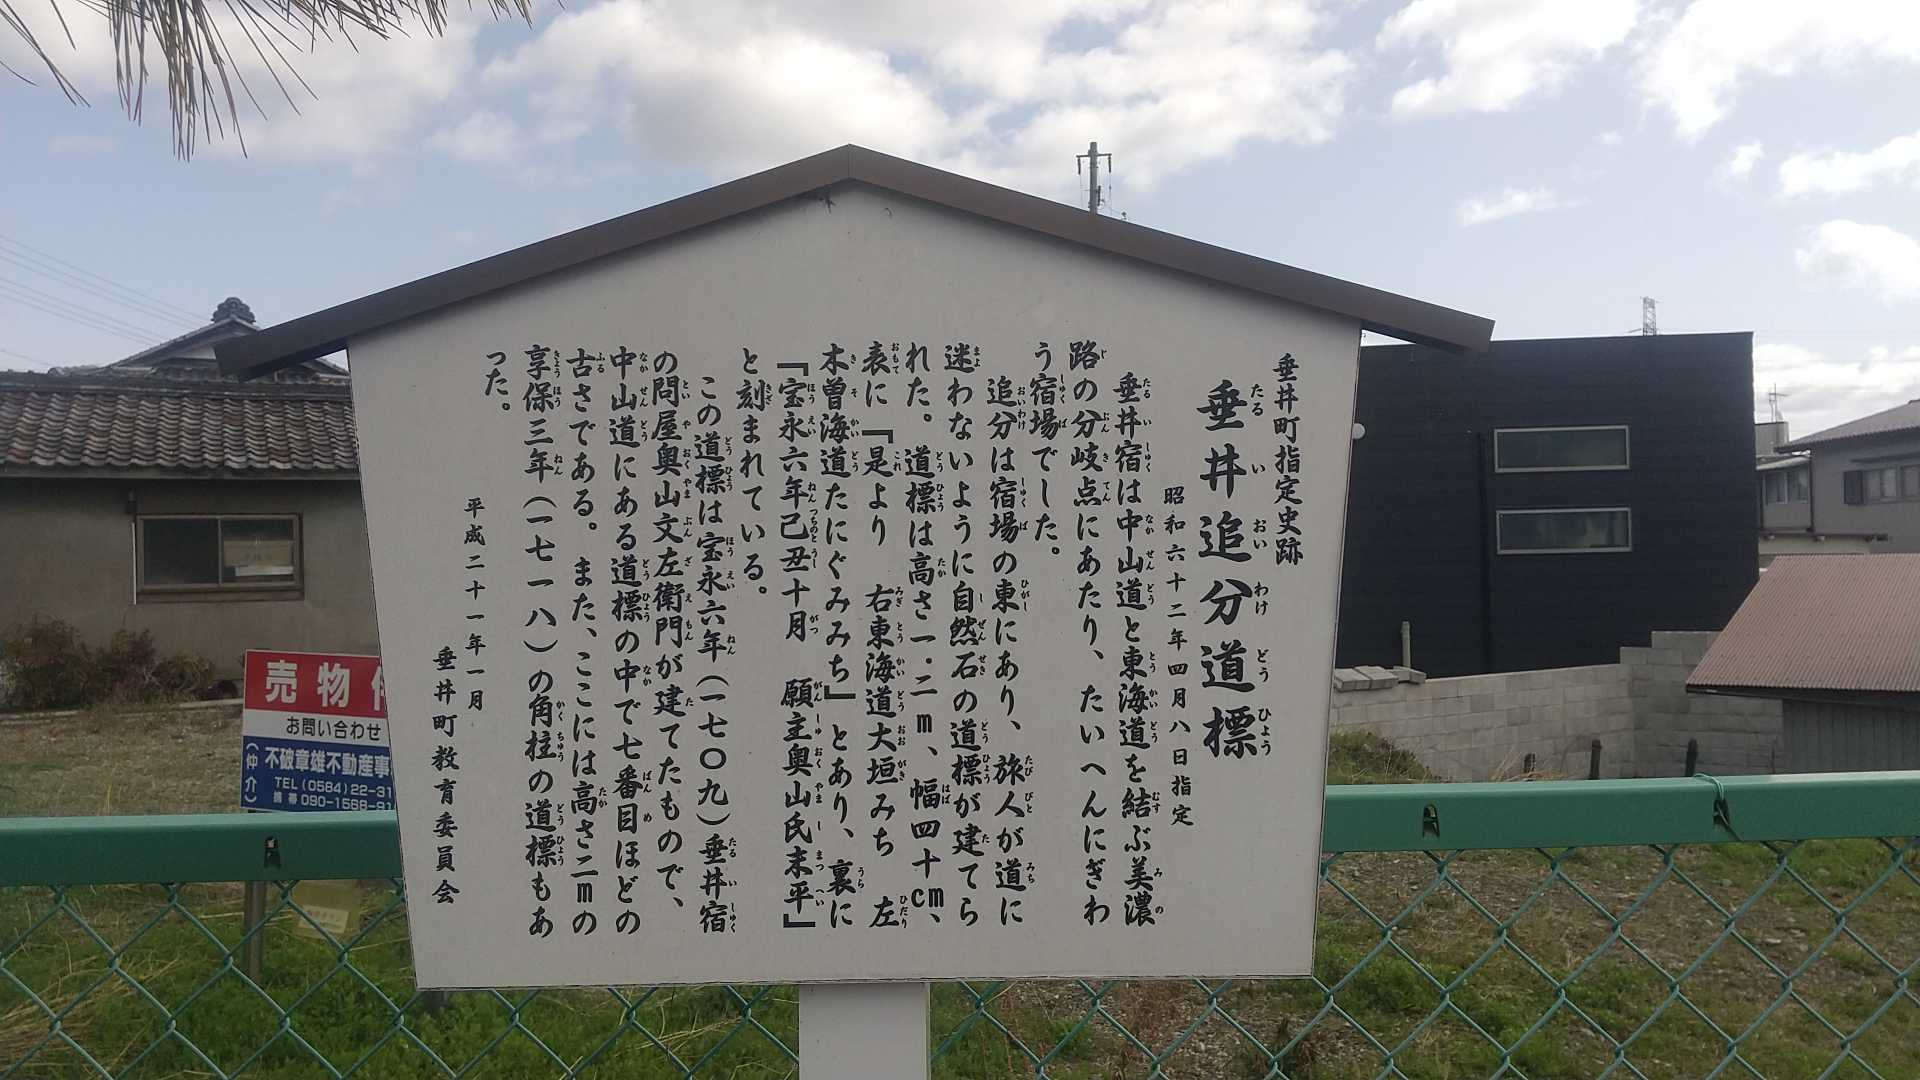 垂井町指定史跡
垂井追分道標
昭和六十二年四月八日指定
垂井宿は中山道と東海道を結ぶ美濃
路の分岐点にあたり、たいへんにぎわ
う宿場でした。
追分は宿場の東にあり、旅人が道に
迷わないように自然石の道標が建てら
れた。道標は高さ一.二m、幅四十cm、
表に『是より 右東海道大垣みち 左
木曽海道たにぐみみち』とあり、裏に
『宝永六年己丑十月 願主奥山氏末平』
と刻まれている。
この道標は宝永六年(一七〇九)垂井宿
の問屋奥山文左衛門が建てたもので、
中山道にある道標の中で七番目ほどの
古さである。また、ここには高さ二mの
享保三年(一七一八)の角柱の道標もあ
った。
平成二十一年一月
垂井町教育委員会
売物
お問い合わせ
(仲介)
不破章雄不動産事
TEL(0584)22-31
携帯 090-1568-91